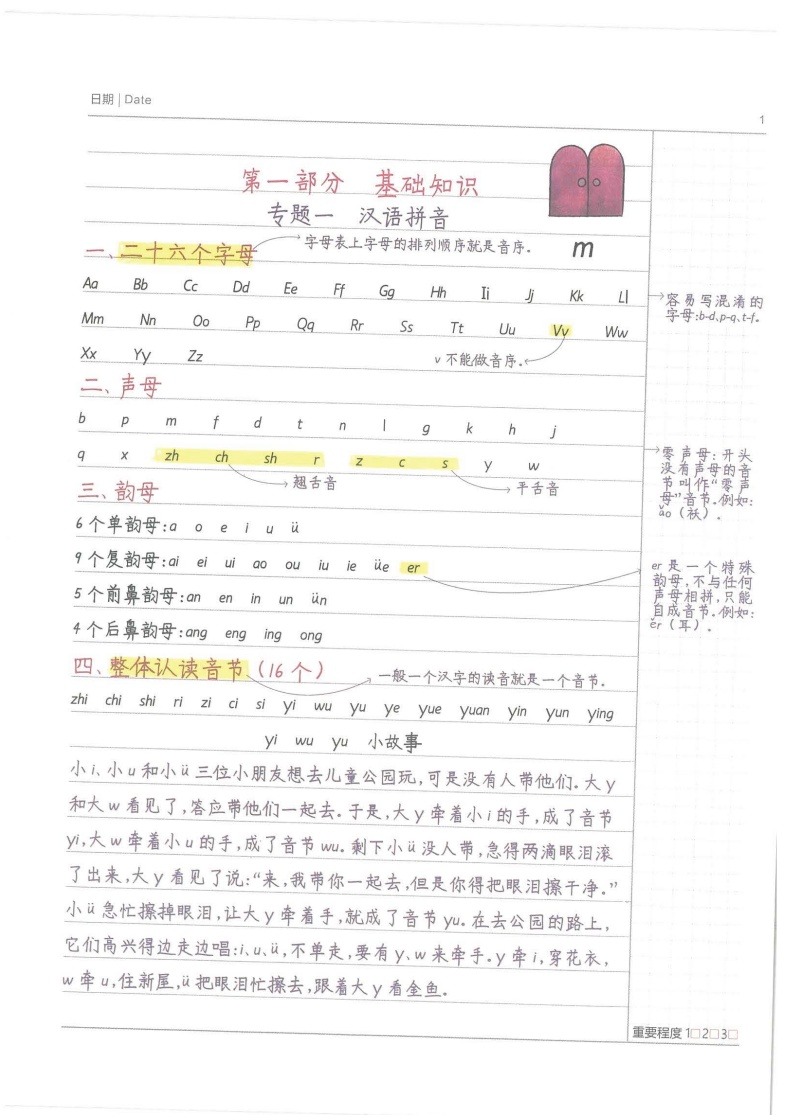 日期 | Date
1
第一部分 基础知识
专题一 汉语拼音
一、二十六个字母
字母表上字母的排列顺序就是音序.
m
Aa Bb Cc Dd Ee Ff Gg Hh Ii Jj Kk Ll
容易写混淆的
字母:b-d、p-q、t-f。
Mm Nn Oo Pp Qq Rr Ss Tt Uu Vv Ww
Xx Yy Zz
v 不能做音序.
二、声母
b p m f d t n l g k h j
q x zh ch sh r z c s y w
翘舌音
平舌音
零声母: 开头
没有声母的音
节叫作“零声
母”音节.例如:
ǎo（袄）.
三、韵母
6个单韵母:a o e i u ü
9个复韵母:ai ei ui ao ou iu ie üe er
er是一个特殊
韵母,不与任何
声母相拼,只能
自成音节.例如:
ěr（耳）.
5个前鼻韵母:an en in un ün
4个后鼻韵母:ang eng ing ong
四、整体认读音节（16个）
一般一个汉字的读音就是一个音节.
zhi chi shi ri zi ci si yi wu yu ye yue yuan yin yun ying
yi wu yu 小故事
小i、小u和小ü三位小朋友想去儿童公园玩,可是没有人带他们.大y
和大w看见了,答应带他们一起去.于是,大y牵着小i的手,成了音节
yi,大w牵着小u的手,成了音节wu.剩下小ü没人带,急得两滴眼泪滚
了出来,大y看见了说:“来,我带你一起去,但是你得把眼泪擦干净.”
小ü急忙擦掉眼泪,让大y牵着手,就成了音节yu.在去公园的路上,
它们高兴得边走边唱:i、u、ü,不单走,要有y、w来牵手.y牵i,穿花衣,
w牵u,住新屋,ü把眼泪忙擦去,跟着大y看金鱼.
重要程度 1□2□3□